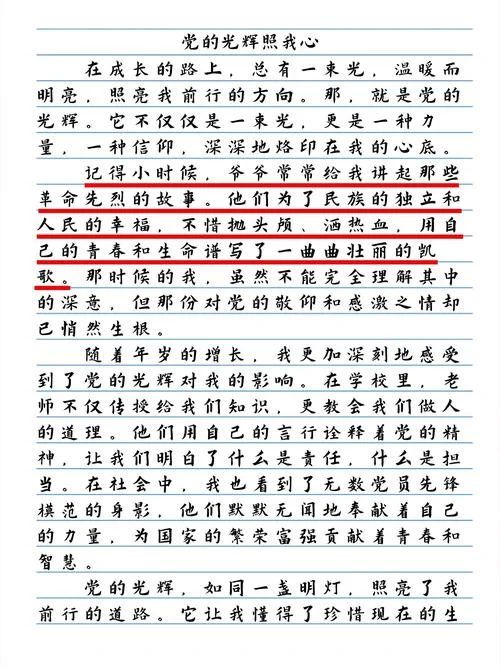 党的光辉照我心
在成长的路上，总有一束光，温暖而
明亮，照亮我前行的方向。那，就是党的
光辉。它不仅仅是一束光，更是一种力
量，一种信仰，深深地烙印在我的心底。
记得小时候，爷爷常常给我讲起那些
革命先烈的故事。他们为了民族的独立和
人民的幸福，不惜抛头颅、洒热血，用自
己的青春和生命谱写了一曲曲壮丽的凯
歌。那时候的我，虽然不能完全理解其中
的深意，但那份对党的敬仰和感激之情却
已悄然生根。
随着年岁的增长，我更加深刻地感受
到了党的光辉对我的影响。在学校里，老
师不仅传授给我们知识，更教会我们做人
的道理。他们用自己的言行诠释着党的精
神，让我们明白了什么是责任，什么是担
当。在社会中，我也看到了无数党员先锋
模范的身影，他们默默无闻地奉献着自己
的力量，为国家的繁荣富强贡献着青春和
智慧。
党的光辉，如同一盏明灯，照亮了我
前行的道路。它让我懂得了珍惜现在的生